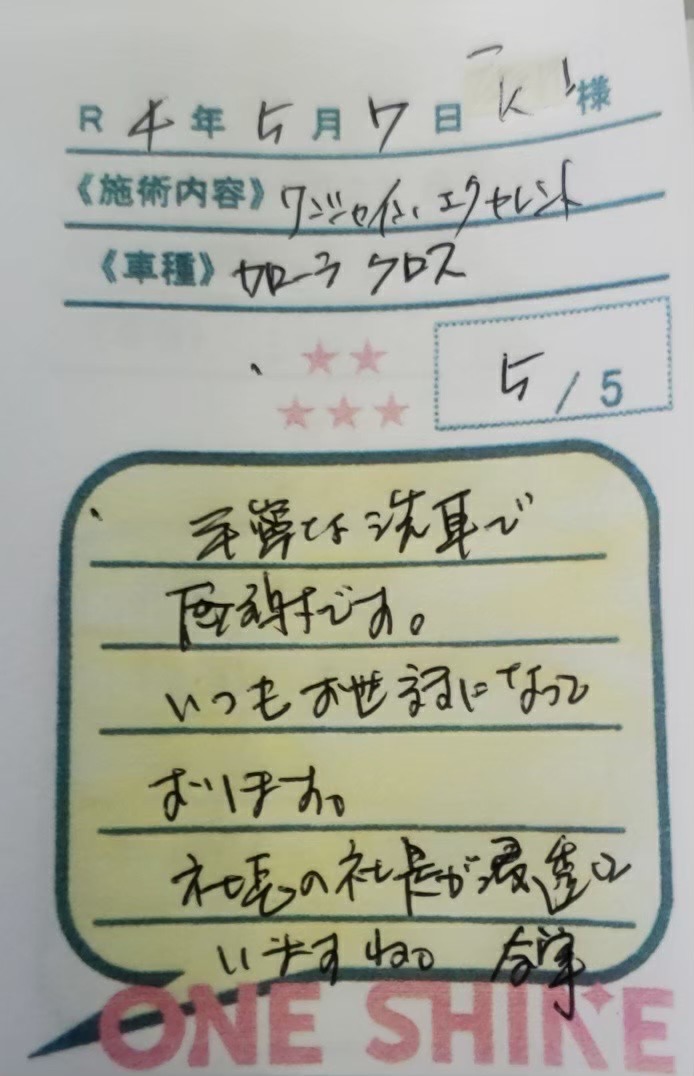 R 4年 5月 7日 K 様
《施術内容》 ワンシャイン エクセレント
《車種》 カローラ クロス
5 / 5
丁寧な洗車で
感謝です。
いつもお世話になって
おります。
社長の社長が
いますね。
ONE SHINE